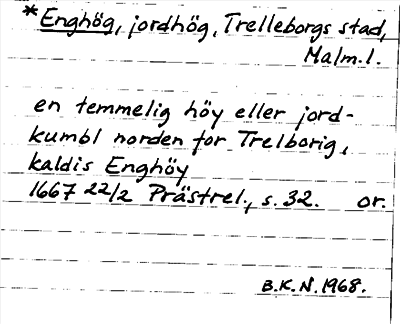 *Enghög, jordhög, Trelleborgs stad,
Malm.l.
en temmelig höy eller jord-
kumbl norden for Trelborig,
kaldis Enghöy
1667 22/2 Prästrel., s. 32. or.
B.K.N. 1968.